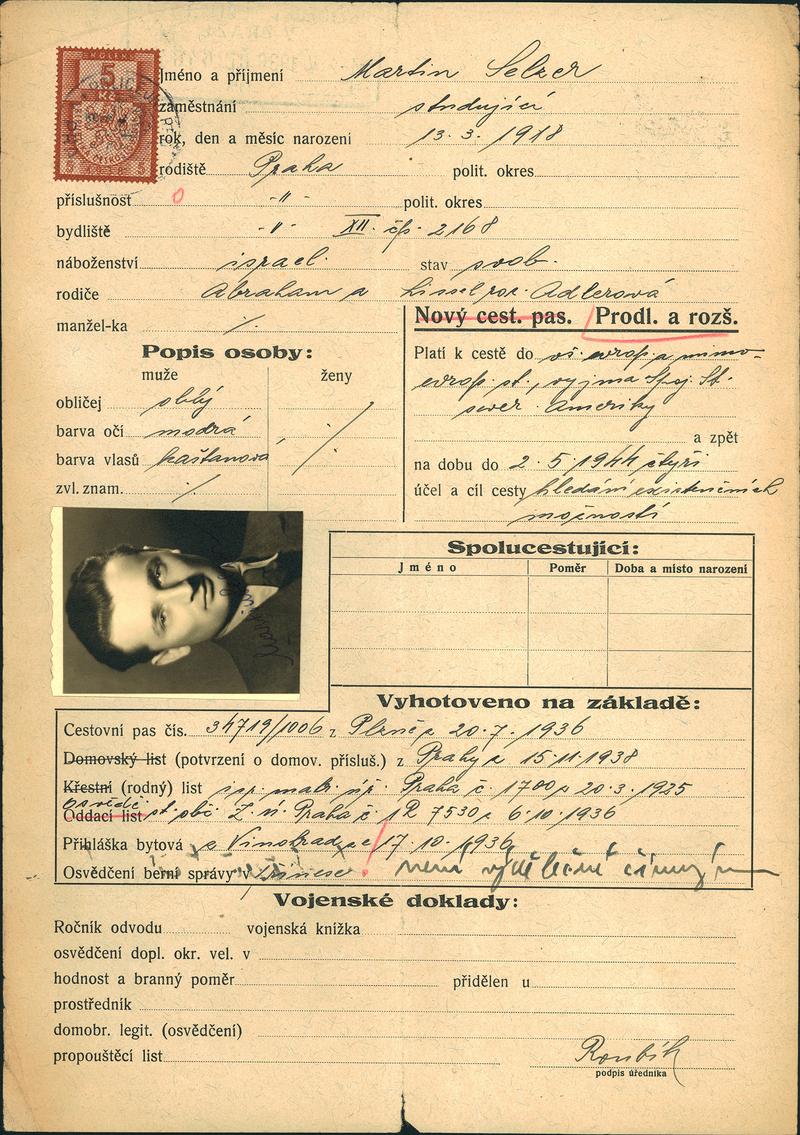 5
Jméno a příjmení Martin Selzer
zaměstnání studující
rok, den a měsíc narození 13. 3. 1918
rodiště Praha polit. okres
příslušnost 0 -"- polit. okres
bydliště -"- XII. čp. 2168
náboženství israel. stav svob.
rodiče Abraham a roz. Adlerová
manžel-ka ./.
Nový cest. pas. Prodl. a rozš.
Popis osoby:
muže ženy
obličej oblý
barva očí modrá
barva vlasů kaštanová
zvl. znam. ./.
Platí k cestě do vš. evrop. a mimo-
evrop. st., vyjma Spoj. St.
sever. Ameriky
a zpět
na dobu do 2. 5. 1944 čtyři
účel a cíl cesty hledání existenčních
možností
Spolucestující:
Jméno Poměr Doba a místo narození
Vyhotoveno na základě:
Cestovní pas čís. 34719/1006 z Plzně z 20. 7. 1936
Domovský list (potvrzení o domov. přísluš.) z Prahy z 15. 11. 1938
Křestní (rodný) list isr. matr. úř. Praha č. 1700 z 20. 3. 1925
osvědč.
Oddací list st. obč. Z. ú. Praha č. 12 7530 z 6. 10. 1936
Přihláška bytová z Vinohrad ze 17. 10. 1936
Osvědčení berní správy v není výdělečně činným
Vojenské doklady:
Ročník odvodu vojenská knížka
osvědčení dopl. okr. vel. v
hodnost a branný poměr přidělen u
prostředník
domobr. legit. (osvědčení)
propouštěcí list
Roubík
podpis úředníka